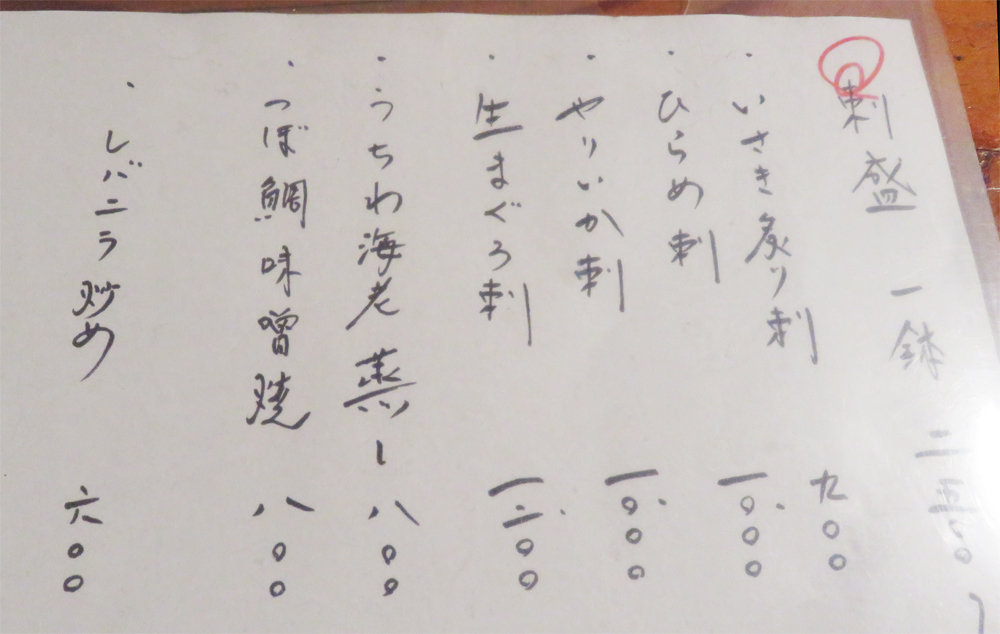 刺盛 一鉢 二五〇〇
・いさき炙り刺 九〇〇
・ひらめ刺 一、〇〇〇
・やりいか刺 一、〇〇〇
・生まぐろ刺 一、二〇〇
・うちわ海老 蒸し 八〇〇
・つぼ鯛味噌焼 八〇〇
・レバニラ炒め 六〇〇